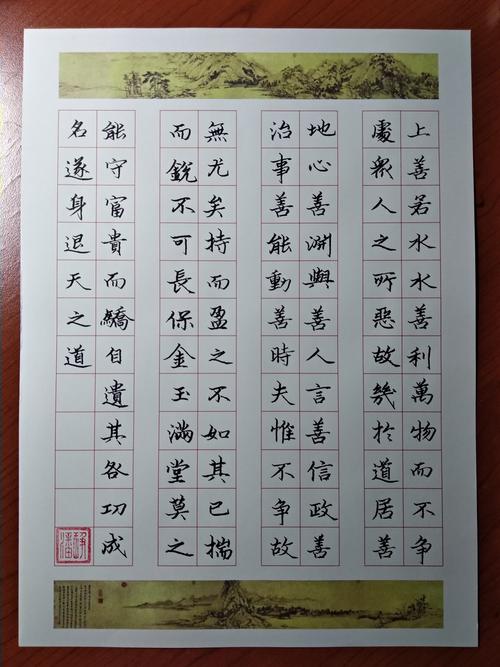 上善若水水善利萬物而不争
處衆人之所惡故幾於道居善
地心善淵與善人言善信政善
治事善能動善時夫惟不争故
無尤矣持而盈之不如其已揣
而銳不可長保金玉滿堂莫之
能守富貴而驕自遺其各功成
名遂身退天之道